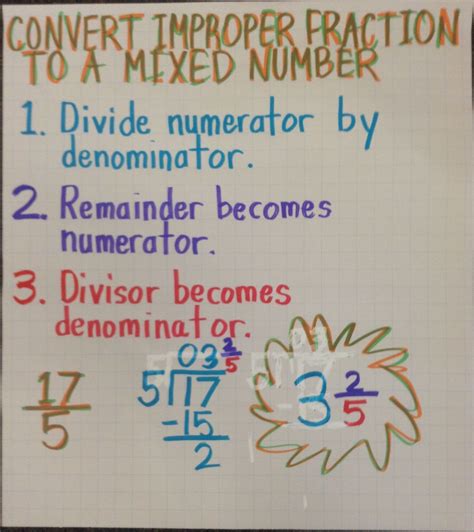 CONVERT IMPROPER FRACTION
TO A MIXED NUMBER
1. Divide numerator by
denominator.
2. Remainder becomes
numerator.
3. Divisor becomes
denominator.
17/5
03 2/5
5)17
-15
2
3 2/5